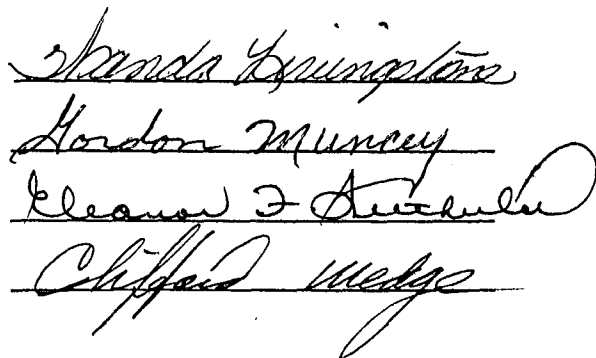 Wanda Livingstone
Gordon Muncey
Eleanor F
Clifford Wedge